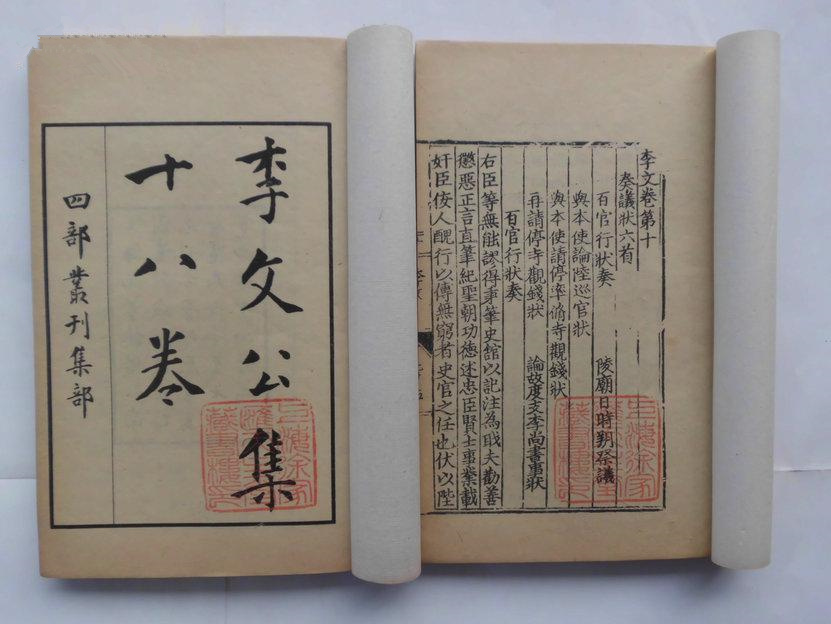 李文公集
十八卷
四部叢刊集部
李文卷第十
奏議狀六首
百官行狀奏
陵廟日時朔祭議
與本使論陸巡官狀
與本使請停率脩寺觀錢狀
再請停寺觀錢狀
論故度支李尚書事狀
百官行狀奏
右臣等無能謬得秉筆史館以記注為職夫勸善
懲惡正言直筆紀聖朝功德述忠臣賢士事業載
奸臣佞人醜行以傳無窮者史官之任也伏以陛